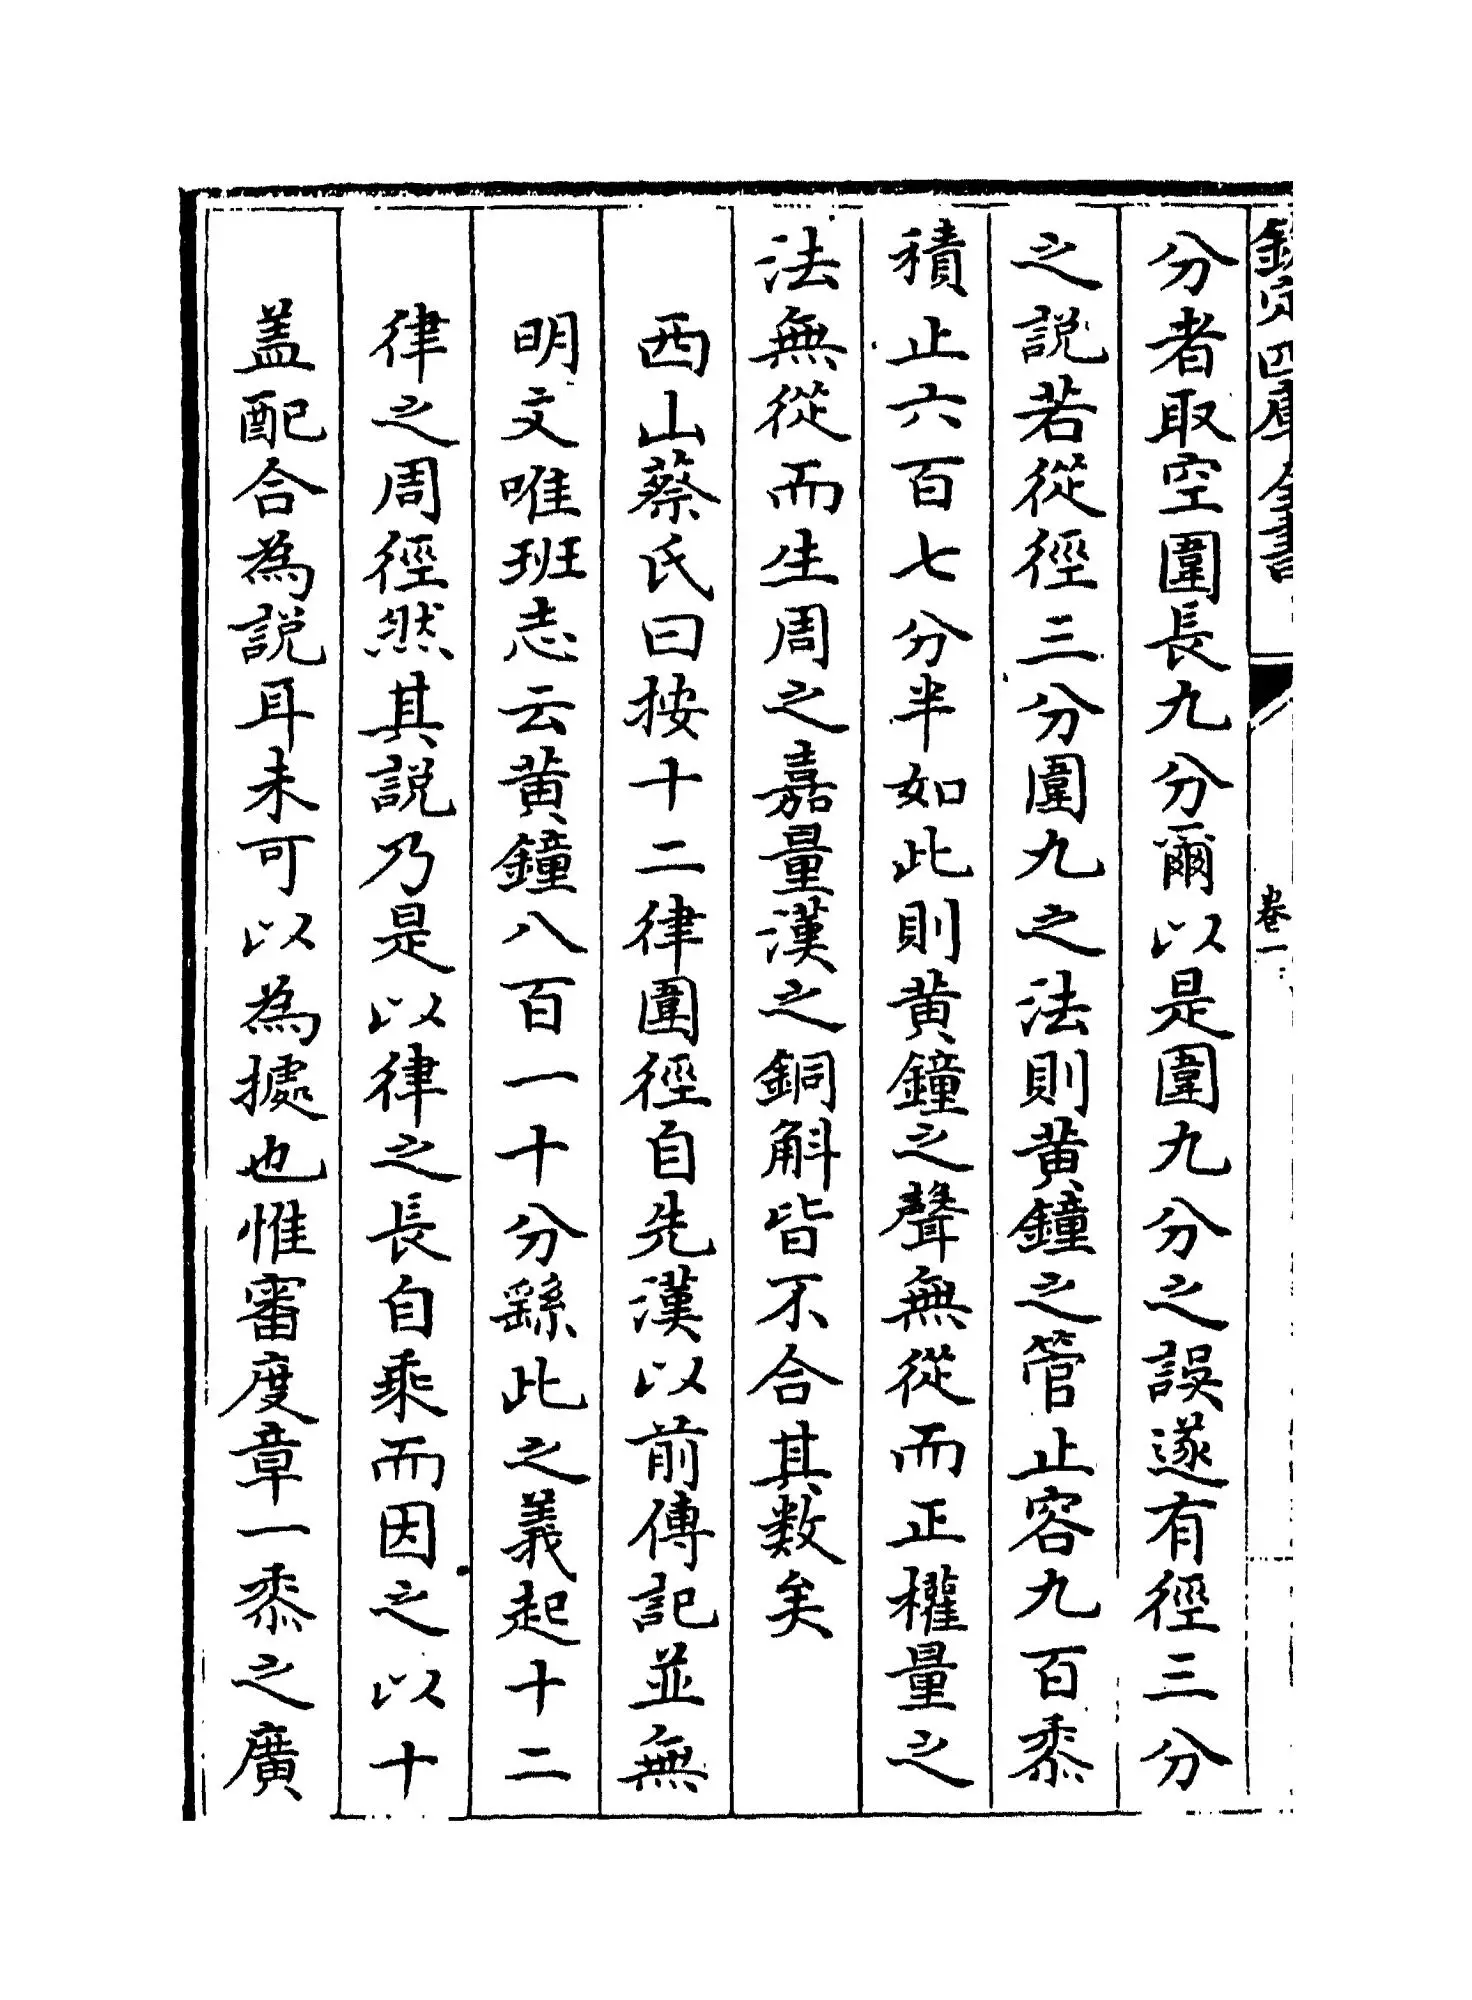 欽定四庫全書
卷一
分者取空圍長九分爾以是圍九分之誤遂有徑三分
之説若從徑三分圍九之法則黄鐘之管止容九百黍
積止六百七分半如此則黄鐘之聲無從而正權量之
法無從而生周之嘉量漢之銅斛皆不合其數矣
西山蔡氏曰按十二律圍徑自先漢以前傳記並無
明文唯班志云黄鐘八百一十分繇此之義起十二
律之周徑然其説乃是以律之長自乘而因之以十
盖配合為説耳未可以為據也惟審度章一黍之廣